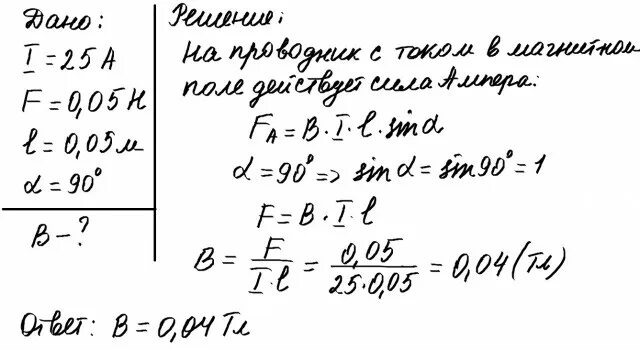 Дано:
I = 25 А
F = 0,05 Н
l = 0,05 м
α = 90°
B – ?
Решение:
На проводник с током в магнитном
поле действует сила Ампера:
F_A = B · I · l · sin α
α = 90° => sin α = sin 90° = 1
F = B · I · l
B = F / (I · l) = 0,05 / (25 · 0,05) = 0,04 (Тл)
Ответ: B = 0,04 Тл